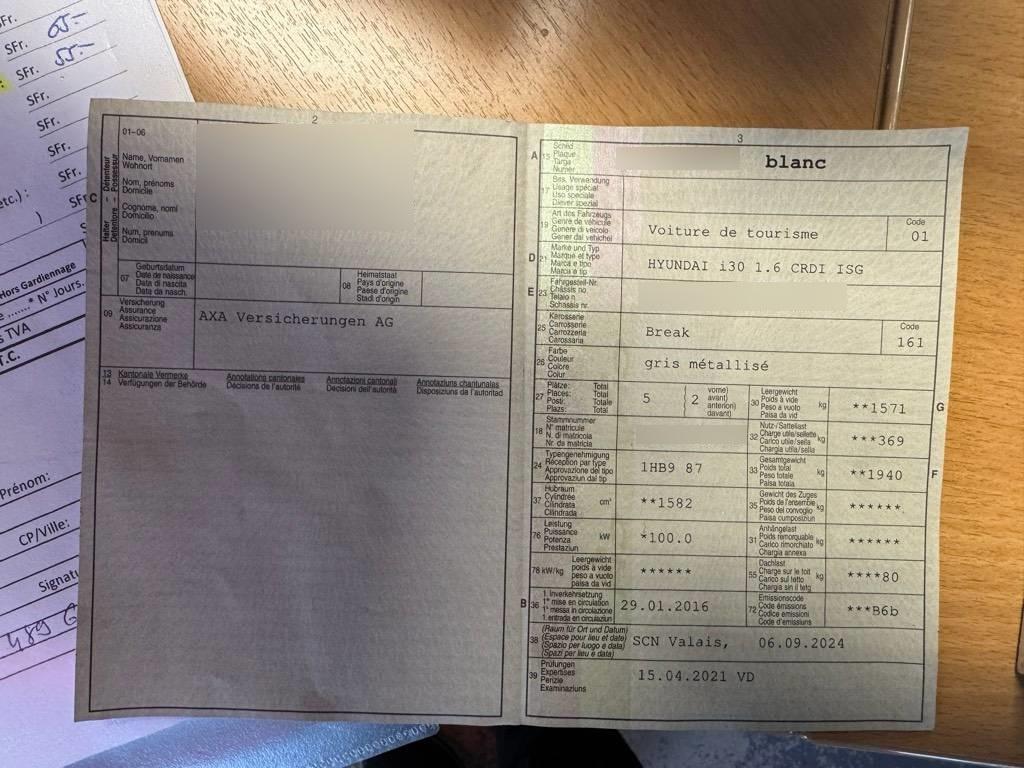 SFr. 65.-
SFr. 55.-
SFr.
SFr.
SFr.
SFr.
etc.) :
)
Hors Gardiennage
* N° Jours.
TVA
T.C.
Prénom:
CP/Ville:
489 G
2
01-06
C
Halter Détenteur
Detentore Possessur
Name, Vornamen
Wohnort
Nom, prénoms
Domicile
Cognome, nomi
Domicilio
Num, prenums
Domicil
07
Geburtsdatum
Date de naissance
Data di nascita
Data da nasch.
08
Heimatstaat
Pays d'origine
Paese d'origine
Stadi d'origin
09
Versicherung
Assurance
Assicurazione
Assicuranza
AXA Versicherungen AG
13
14
Kantonale Vermerke
Verfügungen der Behörde
Annotations cantonales
Décisions de l'autorité
Annotazioni cantonali
Decisioni dell'autorità
Annotaziuns chantunalas
Disposiziuns da l'autoritad
3
A 15
Schild
Plaque
Targa
Numer
blanc
17
Bes. Verwendung
Usage spécial
Uso speciale
Diever spezial
19
Art des Fahrzeugs
Genre de véhicule
Genere di veicolo
Gener dal vehichel
Voiture de tourisme
Code
01
D 21
Marke und Typ
Marque et type
Marca e tipo
Marca e tip
HYUNDAI i30 1.6 CRDI ISG
E 23
Fahrgestell-Nr.
Châssis no
Telaio n.
Schassis nr.
25
Karosserie
Carrosserie
Carrozzeria
Carossaria
Break
Code
161
26
Farbe
Couleur
Colore
Colur
gris métallisé
27
Plätze: Total
Places: Total
Posti: Totale
Plazs: Total
5 ( 2
vorne)
avant)
anteriori)
davant)
30
Leergewicht
Poids à vide
Peso a vuoto
Paisa da vid
kg
**1571
G
18
Stammnummer
N° matricule
N. di matricola
Nr. da matricla
32
Nutz-/Sattellast
Charge utile/sellette
Carico utile/sella
Chargia utila/sella
kg
***369
24
Typengenehmigung
Réception par type
Approvazione del tipo
Approvaziun dal tip
1HB9 87
33
Gesamtgewicht
Poids total
Peso totale
Paisa totala
kg
**1940
F
37
Hubraum
Cylindrée
Cilindrata
Cilindrada
cm³
**1582
35
Gewicht des Zuges
Poids de l'ensemble
Peso del convoglio
Paisa cumposiziun
kg
******
76
Leistung
Puissance
Potenza
Prestaziun
kW
*100.0
31
Anhängelast
Poids remorquable
Carico rimorchiato
Chargia annexa
kg
******
78 kW/kg
Leergewicht
poids à vide
peso a vuoto
paisa da vid
******
55
Dachlast
Charge sur le toit
Carico sul tetto
Chargia sin il tetg
kg
****80
B 36
1. Inverkehrsetzung
1re mise en circulation
1a messa in circolazione
1. entrada en circulaziun
29.01.2016
72
Emissionscode
Code émissions
Codice emissioni
Code d'emissiuns
***B6b
38
(Raum für Ort und Datum)
(Espace pour lieu et date)
(Spazio per luogo e data)
(Spazi per lieu e data)
SCN Valais, 06.09.2024
39
Prüfungen
Expertises
Perizie
Examinaziuns
15.04.2021 VD